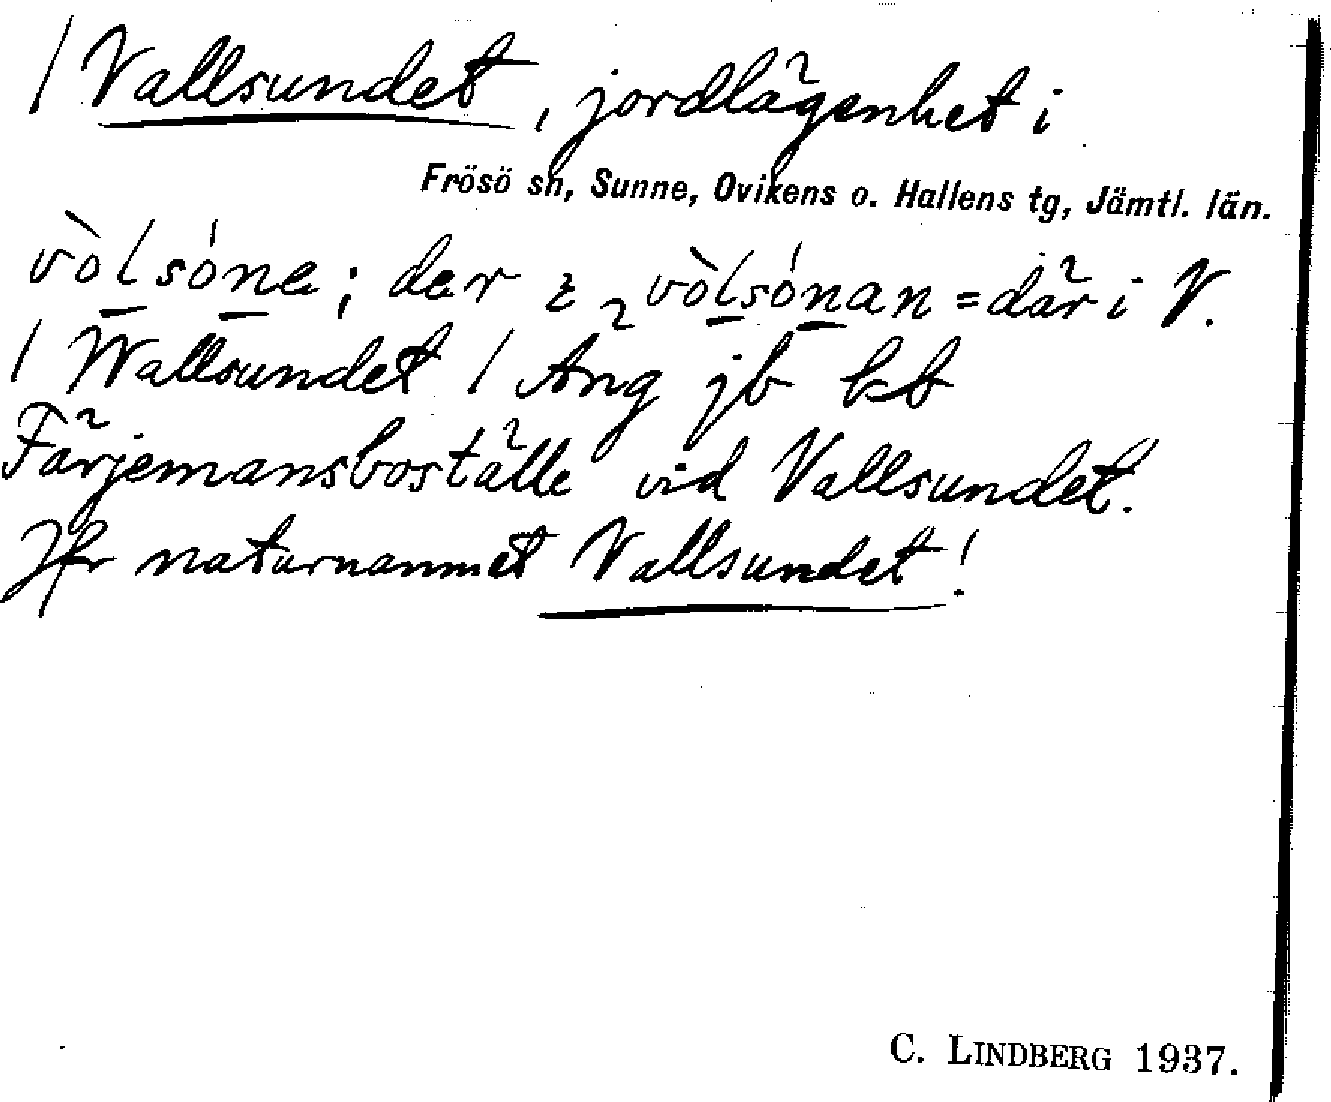 / Vallsundet, jordlägenhet i
Frösö sn, Sunne, Ovikens o. Hallens tg, Jämtl. län.
vòlsóne; der i vòlsónan = där i V.
/ Wallsundet / Äng jb kb
Färjemansboställe vid Vallsundet.
Jfr naturnamnet Vallsundet!
C. LINDBERG 1937.